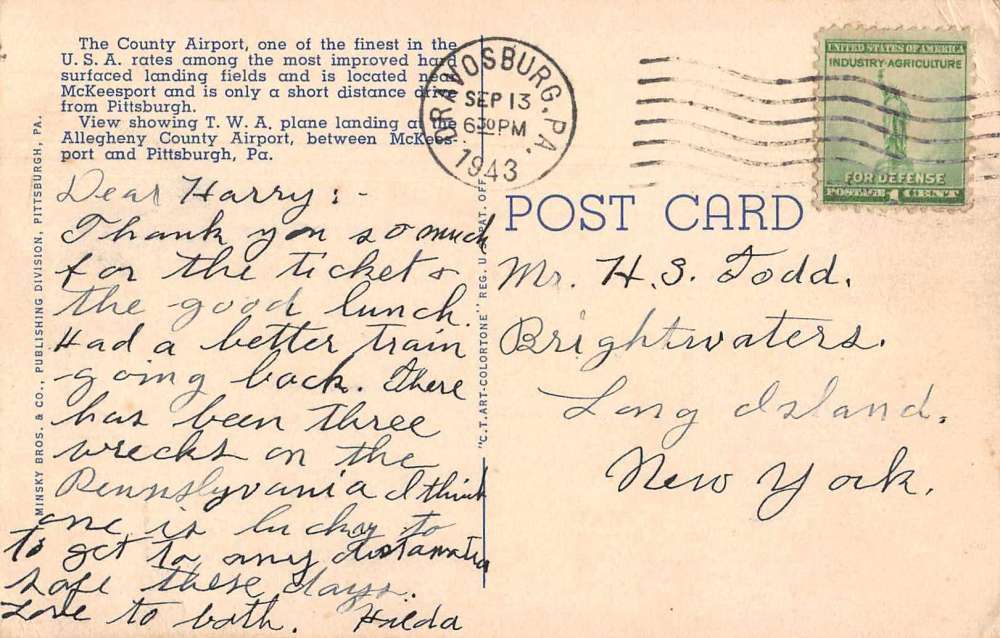 The County Airport, one of the finest in the
U. S. A. rates among the most improved hard
surfaced landing fields and is located near
McKeesport and is only a short distance drive
from Pittsburgh.
View showing T. W. A. plane landing at the
Allegheny County Airport, between McKees-
port and Pittsburgh, Pa.
MINSKY BROS. & CO., PUBLISHING DIVISION, PITTSBURGH, PA.
Dear Harry:-
Thank you so much
for the ticket &
the good lunch.
Had a better train
going back. There
has been three
wrecks on the
Pennslyvania I think
one is lucky to
to get to any
safe these days.
Love to both. Hilda
"C.T. ART-COLORTONE" REG. U.S. PAT. OFF.
DRAVOSBURG, PA.
SEP 13
630 PM
1943
UNITED STATES OF AMERICA
INDUSTRY·AGRICULTURE
FOR DEFENSE
POSTAGE 1 CENT
POST CARD
Mr. H. S. Todd.
Brightwaters.
Long Island.
New York.